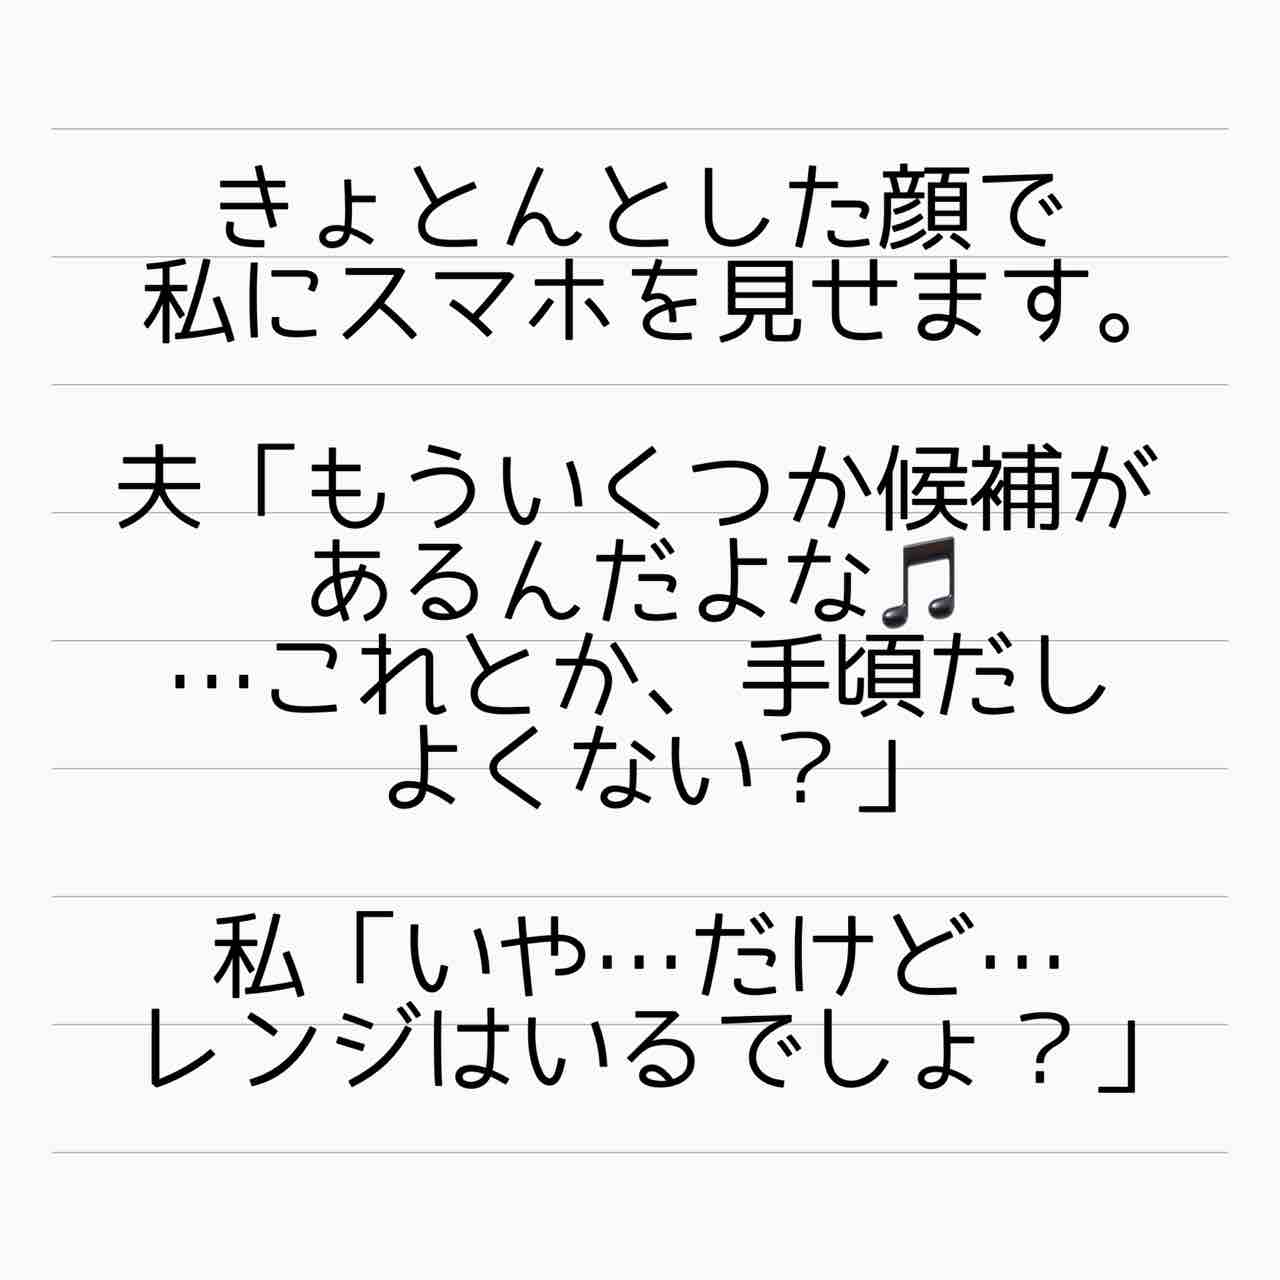 きょとんとした顔で
私にスマホを見せます。
夫「もういくつか候補が
あるんだよな🎵
…これとか、手頃だし
よくない？」
私「いや…だけど…
レンジはいるでしょ？」